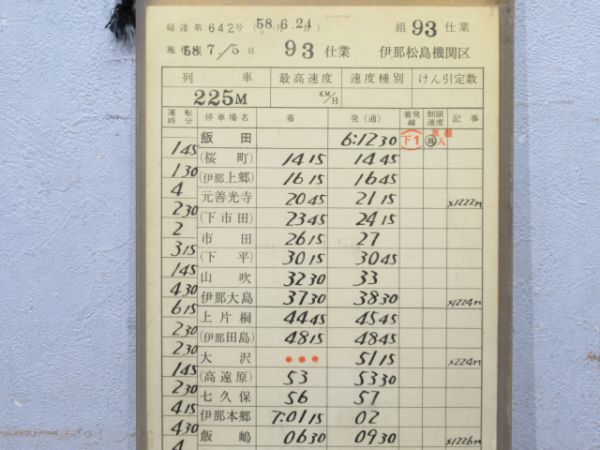 局達第642号 58.6.24
施 58. 7. 15日 93仕業
組 93 仕業
伊那松島機関区
列車 最高速度 速度種別 けん引定数
225M KM/H
運転時分 停車場名 着 発(通) 着発線 制限速度 記事
飯田 6:1230 下1
145
(桜町) 1415 1445
130
(伊那上郷) 1615 1645
4
元善光寺 2045 2115 ×1222M
230
(下市田) 2345 2415
2
市田 2615 27
315
(下平) 3015 3045
145
山吹 3230 33
430
伊那大島 3730 3830 ×1224M
615
上片桐 4445 4545
230
(伊那田島) 4815 4845
230
大沢 ••• 5115 ×224M
145
(高遠原) 53 5330
230
七久保 56 57
415
伊那本郷 7:0115 02
430
飯嶋 0630 0930 ×1226M
4